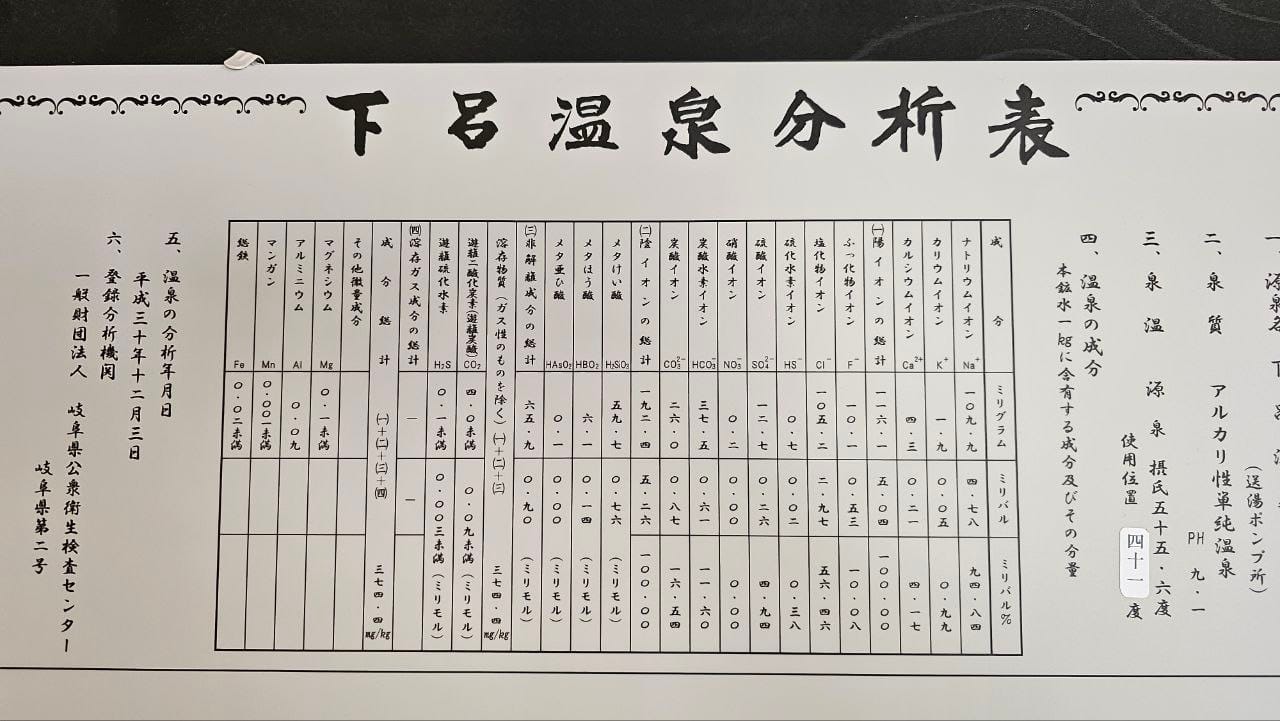 下呂温泉分析表
一、源泉名 下呂
(送湯ポンプ所)
二、泉質 アルカリ性単純温泉
PH 九・一
三、泉温 源泉 摂氏五十五・六度
使用位置 四十一度
四、温泉の成分
本鉱水一kgに含有する成分及びその分量
成分 ミリグラム ミリバル ミリバル%
ナトリウムイオン Na⁺ 一〇九・九 四・七八 九四・八四
カリウムイオン K⁺ 一・九 〇・〇五 〇・九九
カルシウムイオン Ca²⁺ 四・三 〇・二一 四・一七
㈠陽イオンの総計 一一六・一 五・〇四 一〇〇・〇〇
ふっ化物イオン F⁻ 一〇・一 〇・五三 一〇・〇八
塩化物イオン Cl⁻ 一〇五・二 二・九七 五六・四六
硫化水素イオン HS⁻ 〇・七 〇・〇二 〇・三八
硫酸イオン SO₄²⁻ 一二・七 〇・二六 四・九四
硝酸イオン NO₃⁻ 〇・二 〇・〇〇 〇・〇〇
炭酸水素イオン HCO₃⁻ 三七・五 〇・六一 一一・六〇
炭酸イオン CO₃²⁻ 二六・〇 〇・八七 一六・五四
㈡陰イオンの総計 一九二・四 五・二六 一〇〇・〇〇
メタけい酸 H₂SiO₃ 五九・七 〇・七六 (ミリモル)
メタほう酸 HBO₂ 六・一 〇・一四 (ミリモル)
メタ亜ひ酸 HAsO₂ 〇・一 〇・〇〇 (ミリモル)
㈢非解離成分の総計 六五・九 〇・九〇 (ミリモル)
溶存物質(ガス性のものを除く)㈠+㈡+㈢ 三七四・四mg/kg
遊離二酸化炭素(遊離炭酸) CO₂ 四・〇未満 〇・〇九未満 (ミリモル)
遊離硫化水素 H₂S 〇・一未満 〇・〇〇三未満 (ミリモル)
㈣溶存ガス成分の総計 — —
成分総計 ㈠+㈡+㈢+㈣ 三七四・四mg/kg
その他微量成分
マグネシウム Mg 〇・一未満
アルミニウム Al 〇・〇九
マンガン Mn 〇・〇〇一未満
総鉄 Fe 〇・〇二未満
五、温泉の分析年月日
平成三十年十二月三日
六、登録分析機関
一般財団法人 岐阜県公衆衛生検査センター
岐阜県第二号